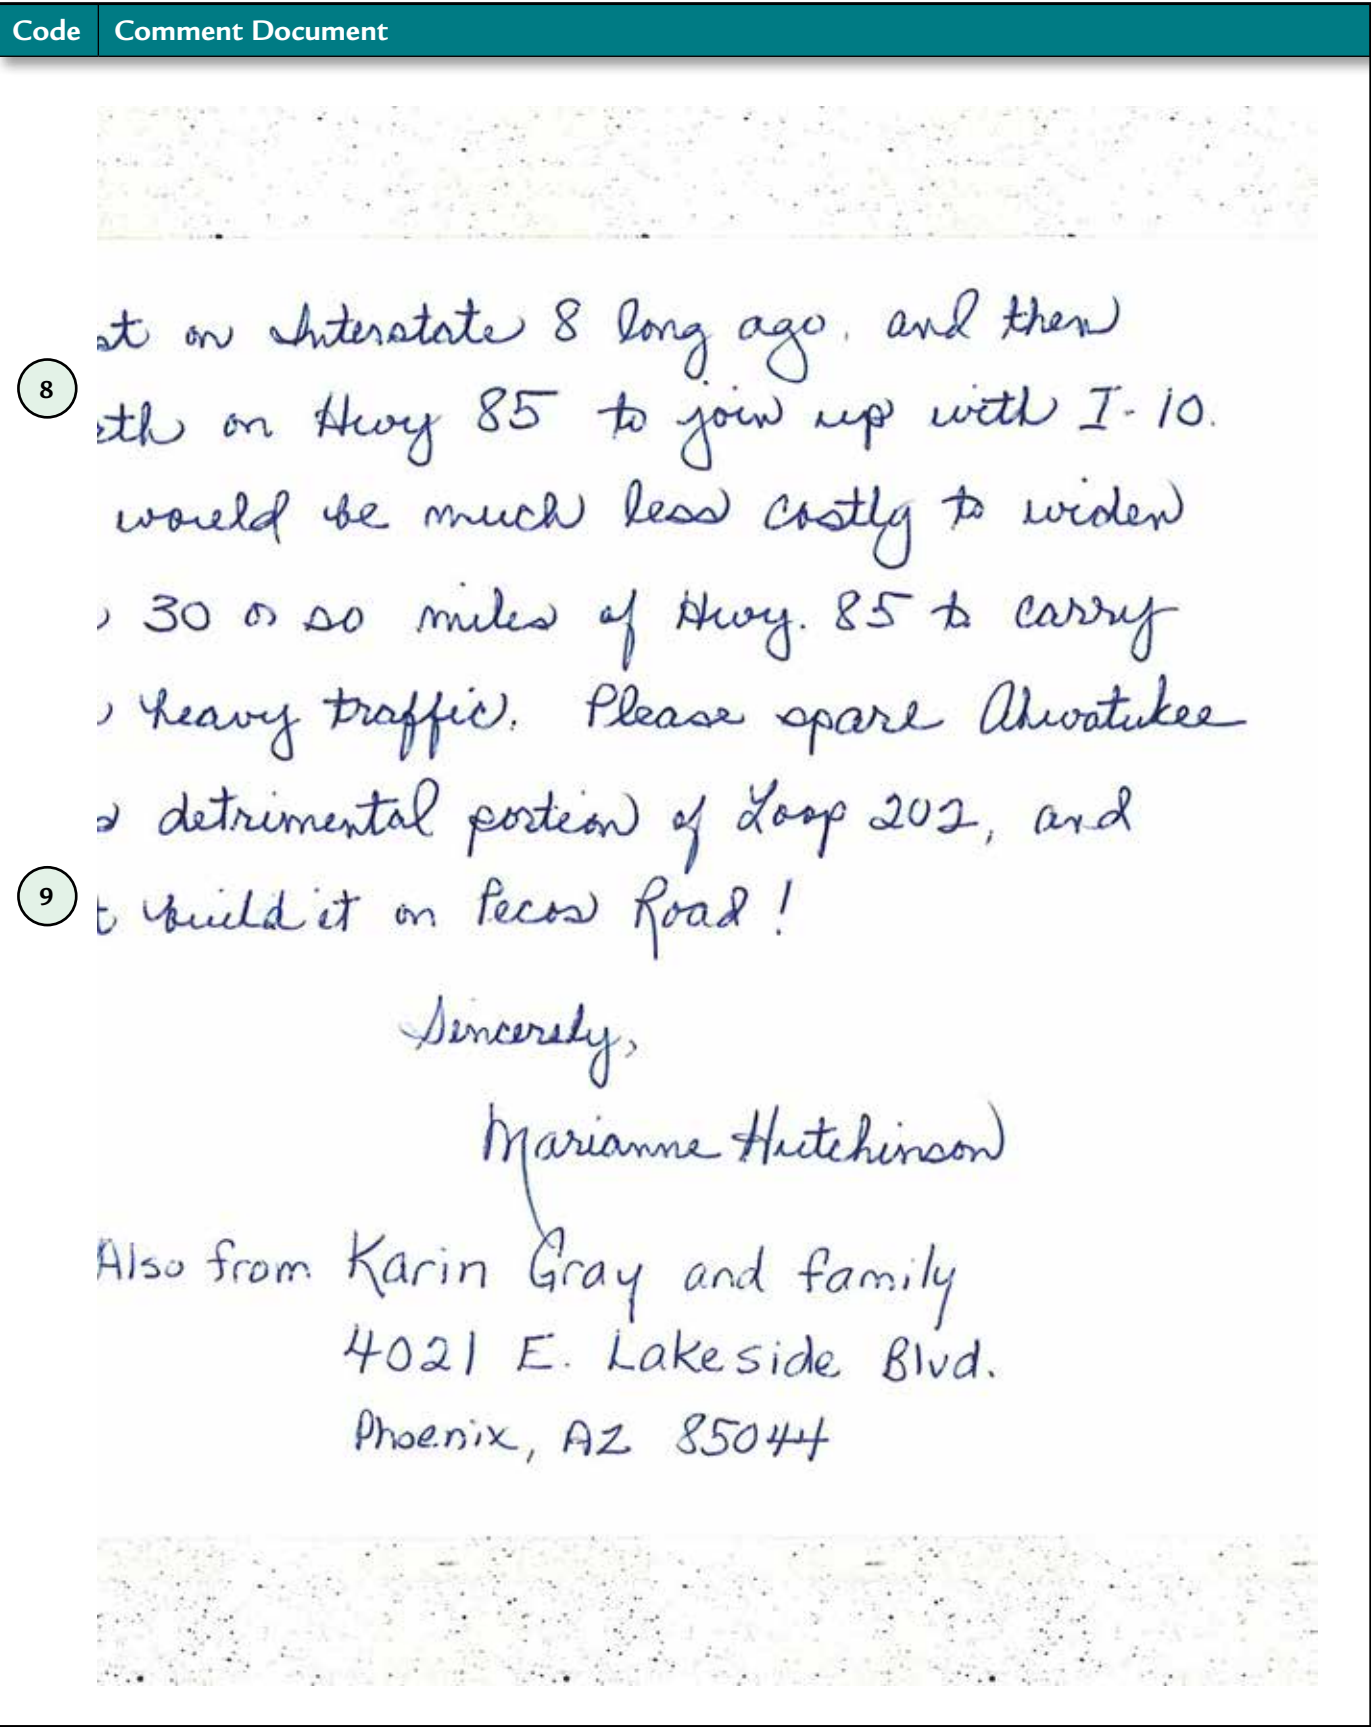 Code Comment Document
st on Interstate 8 long ago, and then
8
th on Hwy 85 to join up with I-10.
would be much less costly to widen
30 or so miles of Hwy. 85 to carry
heavy traffic. Please spare Ahwatukee
detrimental portion of Loop 202, and
9
t build it on Pecos Road!
Sincerely,
Marianne Hutchinson
Also from Karin Gray and family
4021 E. Lakeside Blvd.
Phoenix, AZ 85044